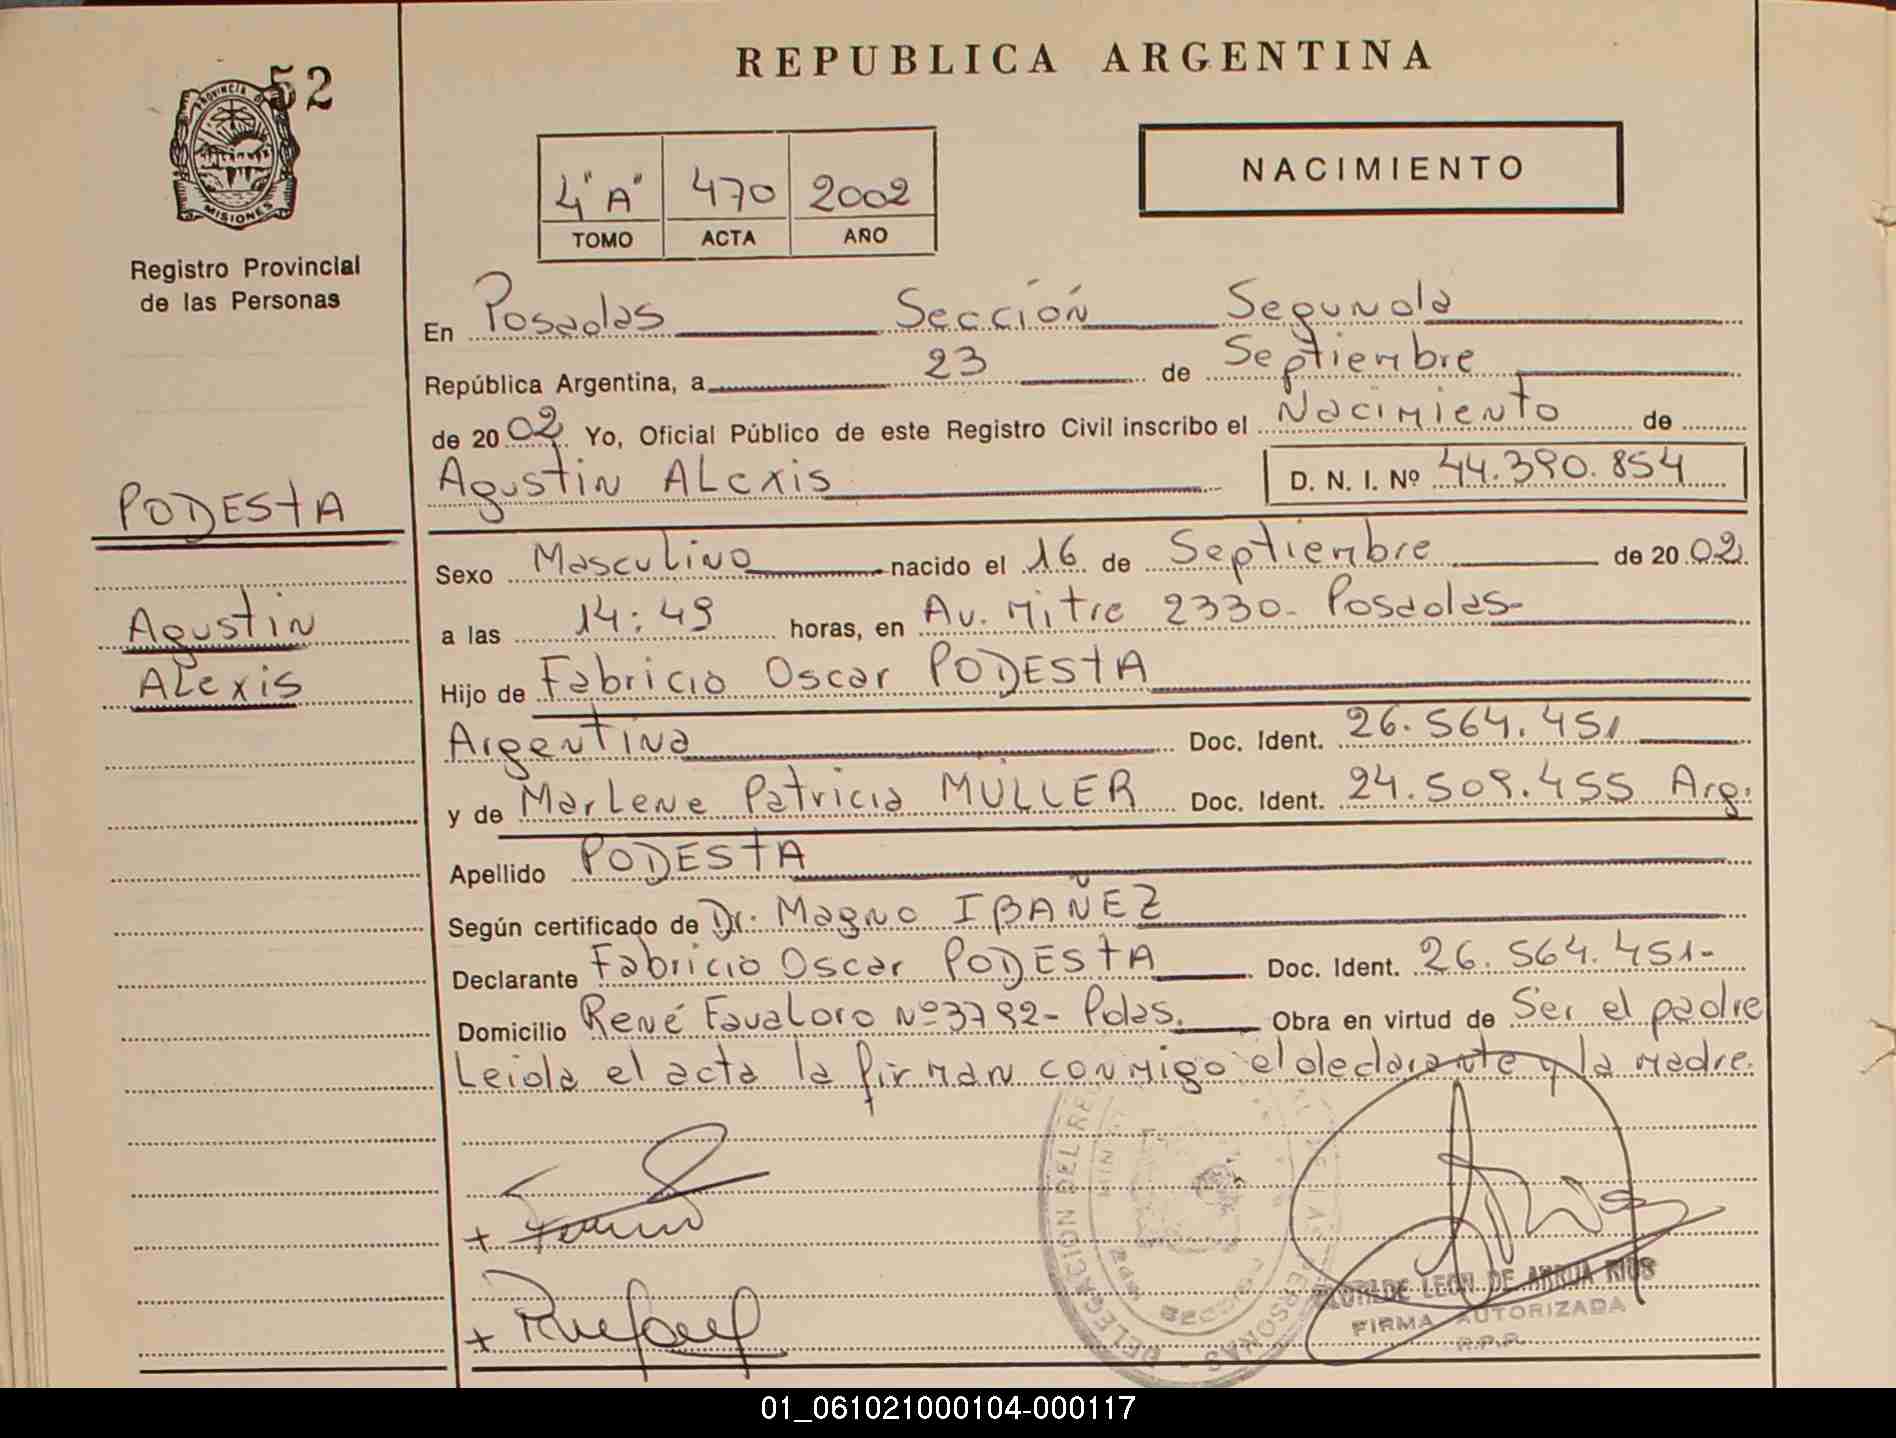 52
PROVINCIA DE
MISIONES
Registro Provincial
de las Personas
REPUBLICA ARGENTINA
4"A" 470 2002
TOMO ACTA AÑO
NACIMIENTO
En Posadas Sección Segunda
República Argentina, a 23 de Septiembre
de 2002 Yo, Oficial Público de este Registro Civil inscribo el Nacimiento de
Agustin ALexis D. N. I. Nº 44.390.854
PODESTA
Agustin
ALexis
Sexo Masculino nacido el 16 de Septiembre de 2002.
a las 14:49 horas, en Av. Mitre 2330- Posadas-
Hijo de Fabricio Oscar PODESTA
Argentina Doc. Ident. 26.564.451
y de MarLene Patricia MÜLLER Doc. Ident. 24.509.455 Arg.
Apellido PODESTA
Según certificado de Dr. Magno IBAÑEZ
Declarante Fabricio Oscar PODESTA Doc. Ident. 26.564.451-
Domicilio René FavaLoro Nº3792- Pdas. Obra en virtud de Ser el padre
Leida el acta la firman conmigo el declarante y la madre.
+
+
DELEGACION DEL PERSONAS
LEON DE ARRUA RIOS
FIRMA AUTORIZADA
R.P.P.
01_061021000104-000117